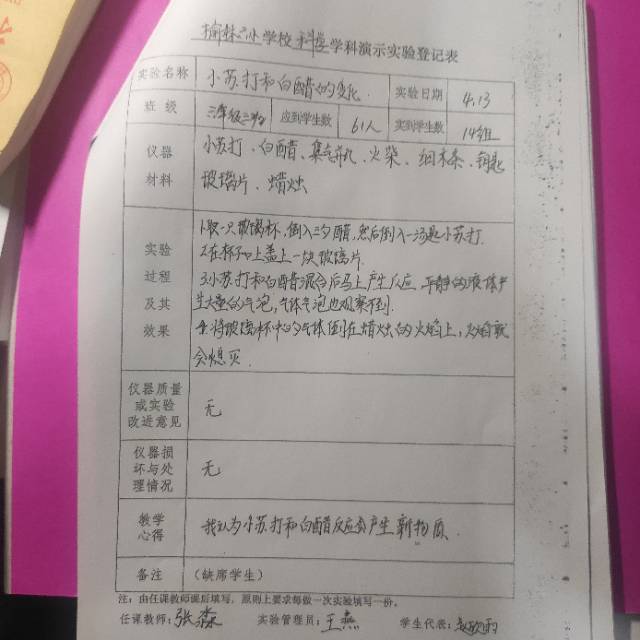 榆林小学校科学学科演示实验登记表
实验名称 小苏打和白醋的变化 实验日期 4.13
班 级 三年级三班 应到学生数 61人 实到学生数 14组
仪器 小苏打、白醋、集气瓶、火柴、细木条、钥匙
材料 玻璃片、蜡烛
1.取一只玻璃杯,倒入三分醋,然后倒入一汤匙小苏打.
实验 2.在杯口上盖上一块玻璃片.
过程 3.小苏打和白醋混合后马上产生反应 平静的液体产
及其 生大量的气泡,气体气泡也观察到.
效果 4.将玻璃杯中的气体倒在蜡烛的火焰上,火焰就
会熄灭
仪器质量
或实验 无
改进意见
仪器损
坏与处 无
理情况
教学 我认为小苏打和白醋反应会产生新物质.
心得
备注 (缺席学生)
注:由任课教师课后填写,原则上要求每做一次实验填写一份。
任课教师:张淼 实验管理员:王燕 学生代表: